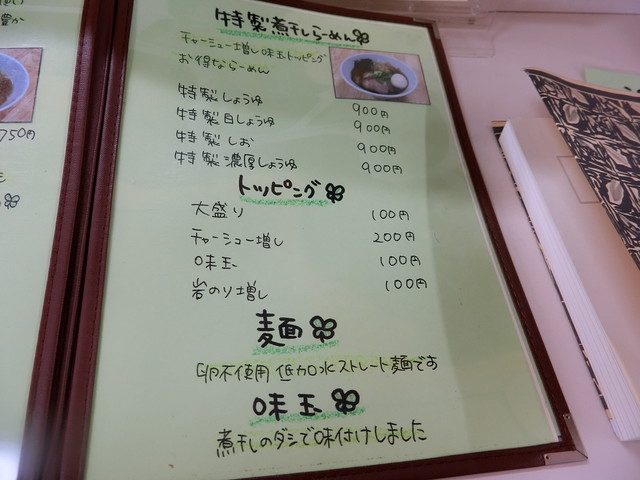 特製煮干しらーめん
チャーシュー増し味玉トッピング
お得ならーめん
特製しょうゆ 900円
特製白しょうゆ 900円
特製しお 900円
特製濃厚しょうゆ 900円
トッピング
大盛り 100円
チャーシュー増し 200円
味玉 100円
岩のり増し 100円
麺
卵不使用 低加水ストレート麺です
味玉
煮干しのダシで味付けしました
750円